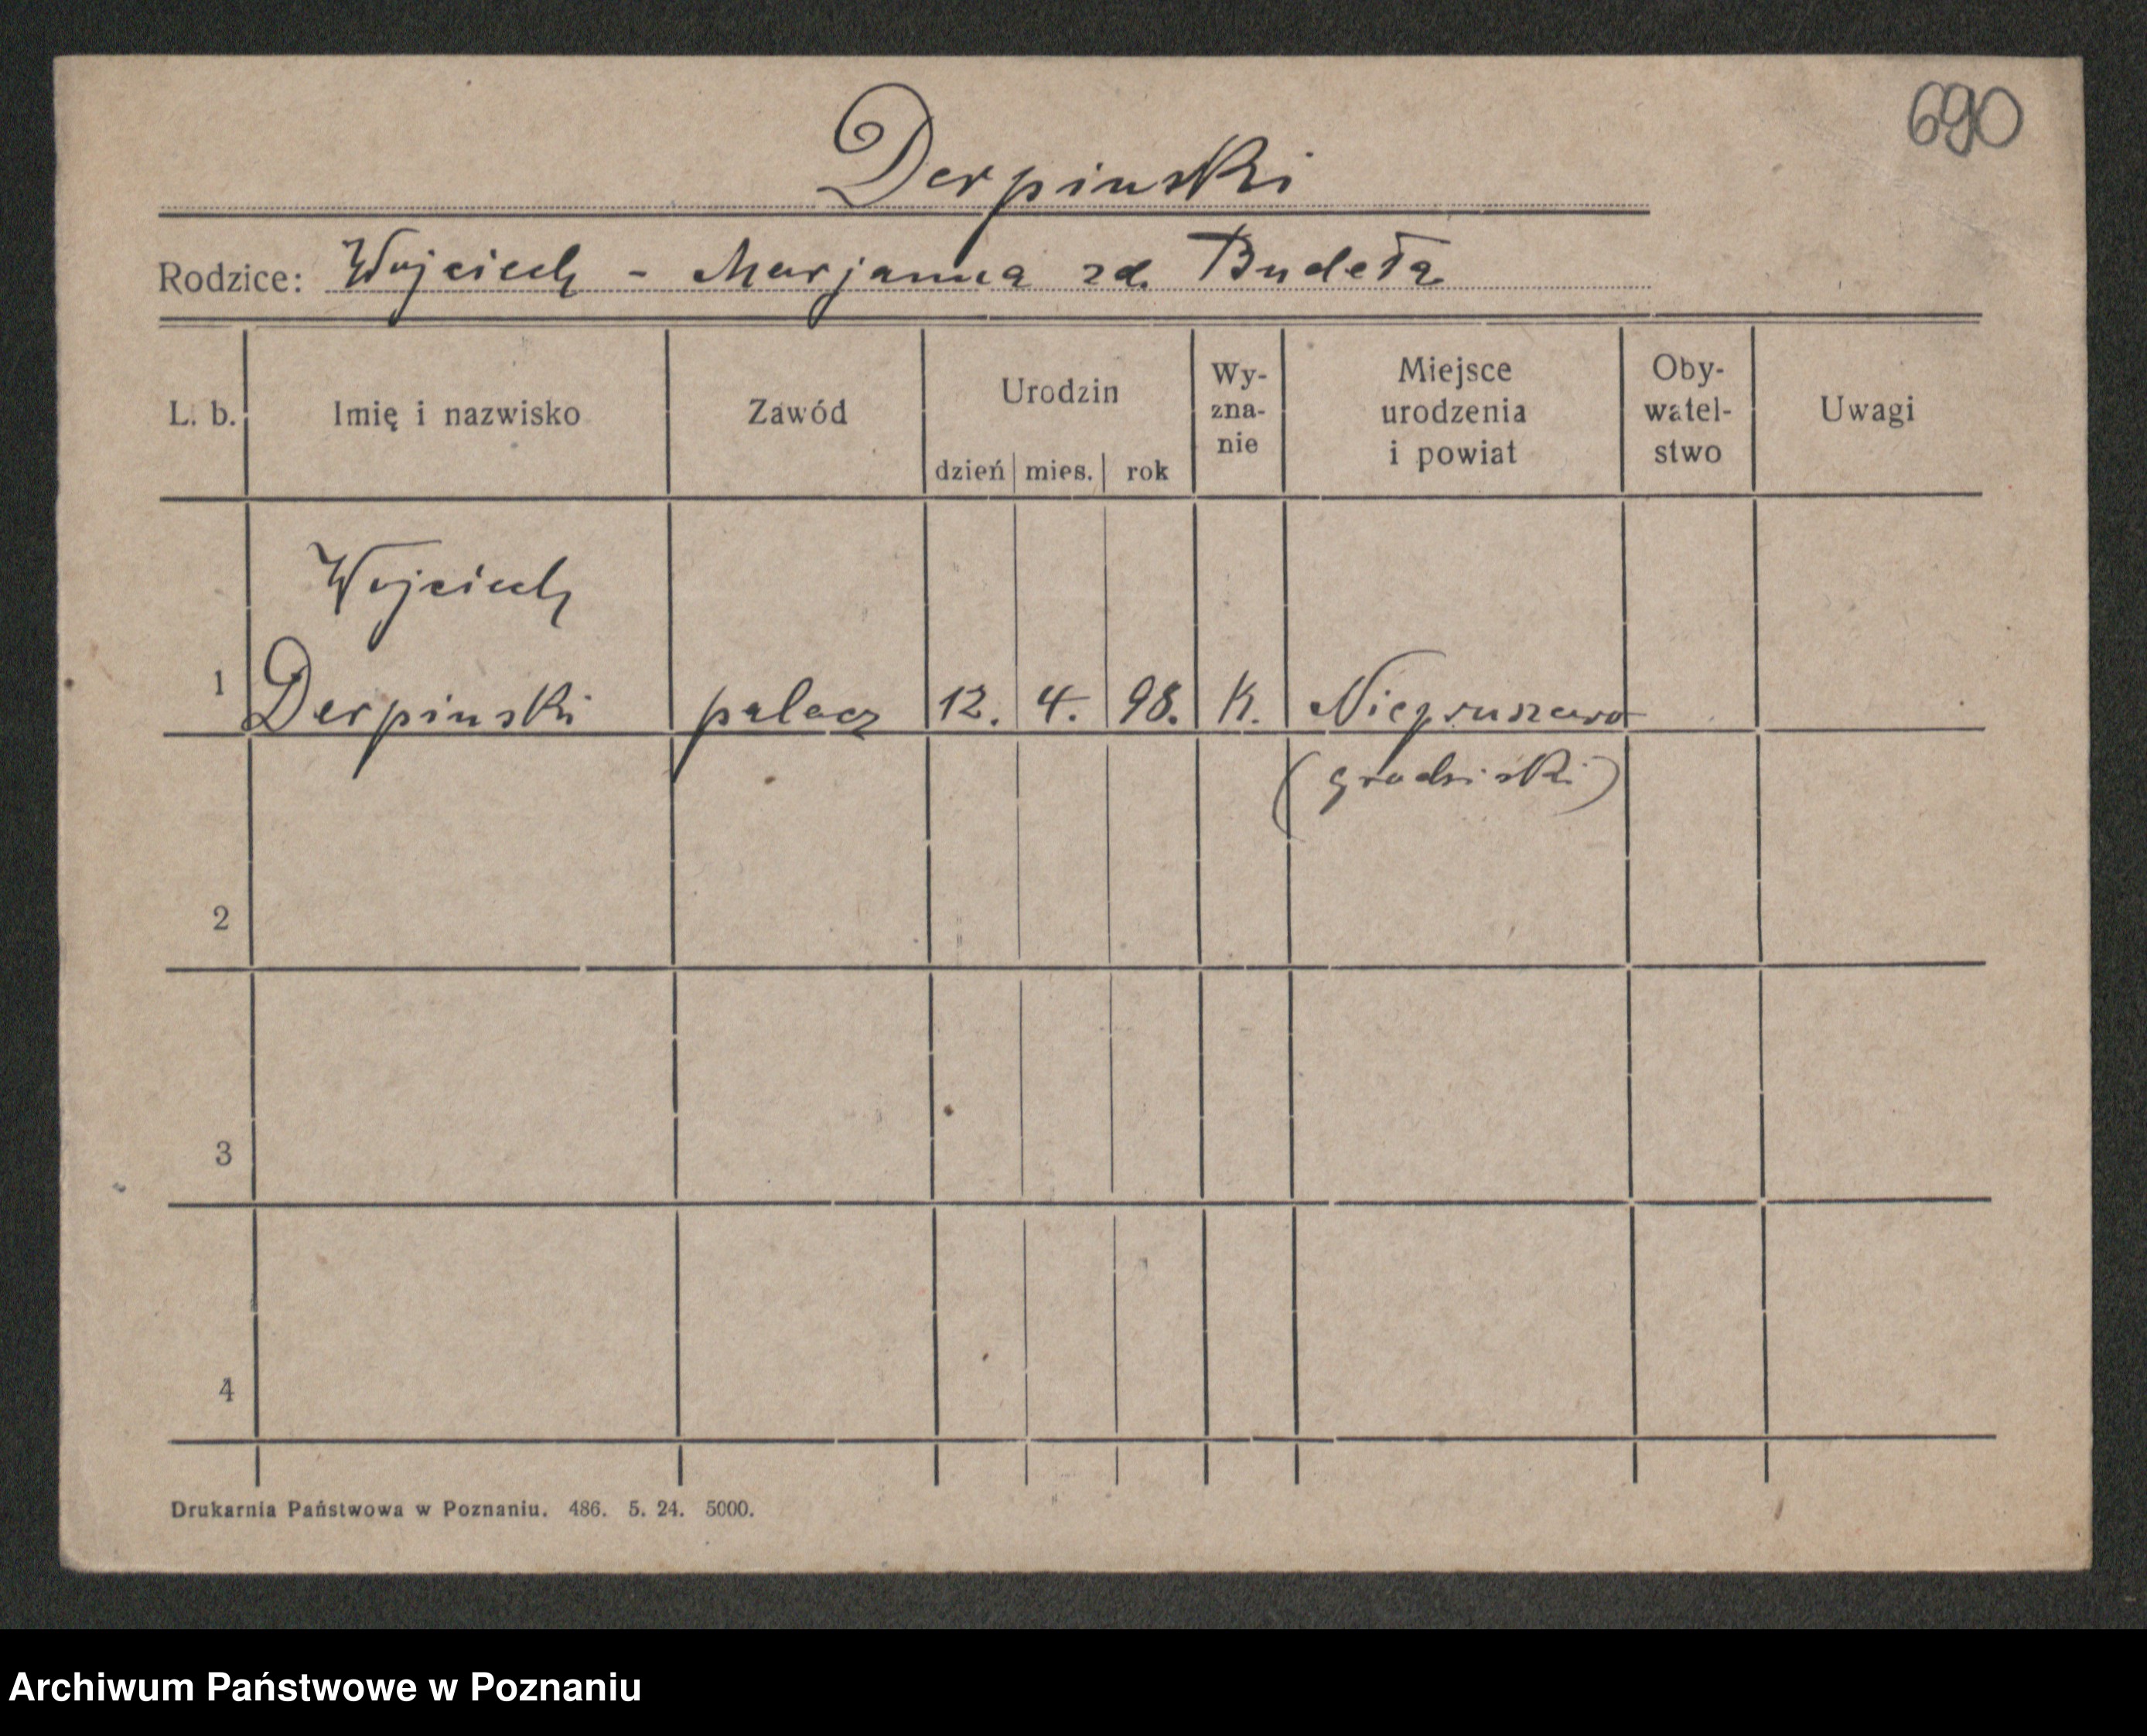 690
Derpinski
Rodzice: Wojciech - Marjanna zd. Budeła
L. b. Imię i nazwisko Zawód Urodzin dzień mies. rok Wy-zna-nie Miejsce urodzenia i powiat Oby-watel-stwo Uwagi
Wojciech
1 Derpinski palacz 12. 4. 98. K. Niepruszewo
(grodziski)
2
3
4
Drukarnia Państwowa w Poznaniu. 486. 5. 24. 5000.
Archiwum Państwowe w Poznaniu